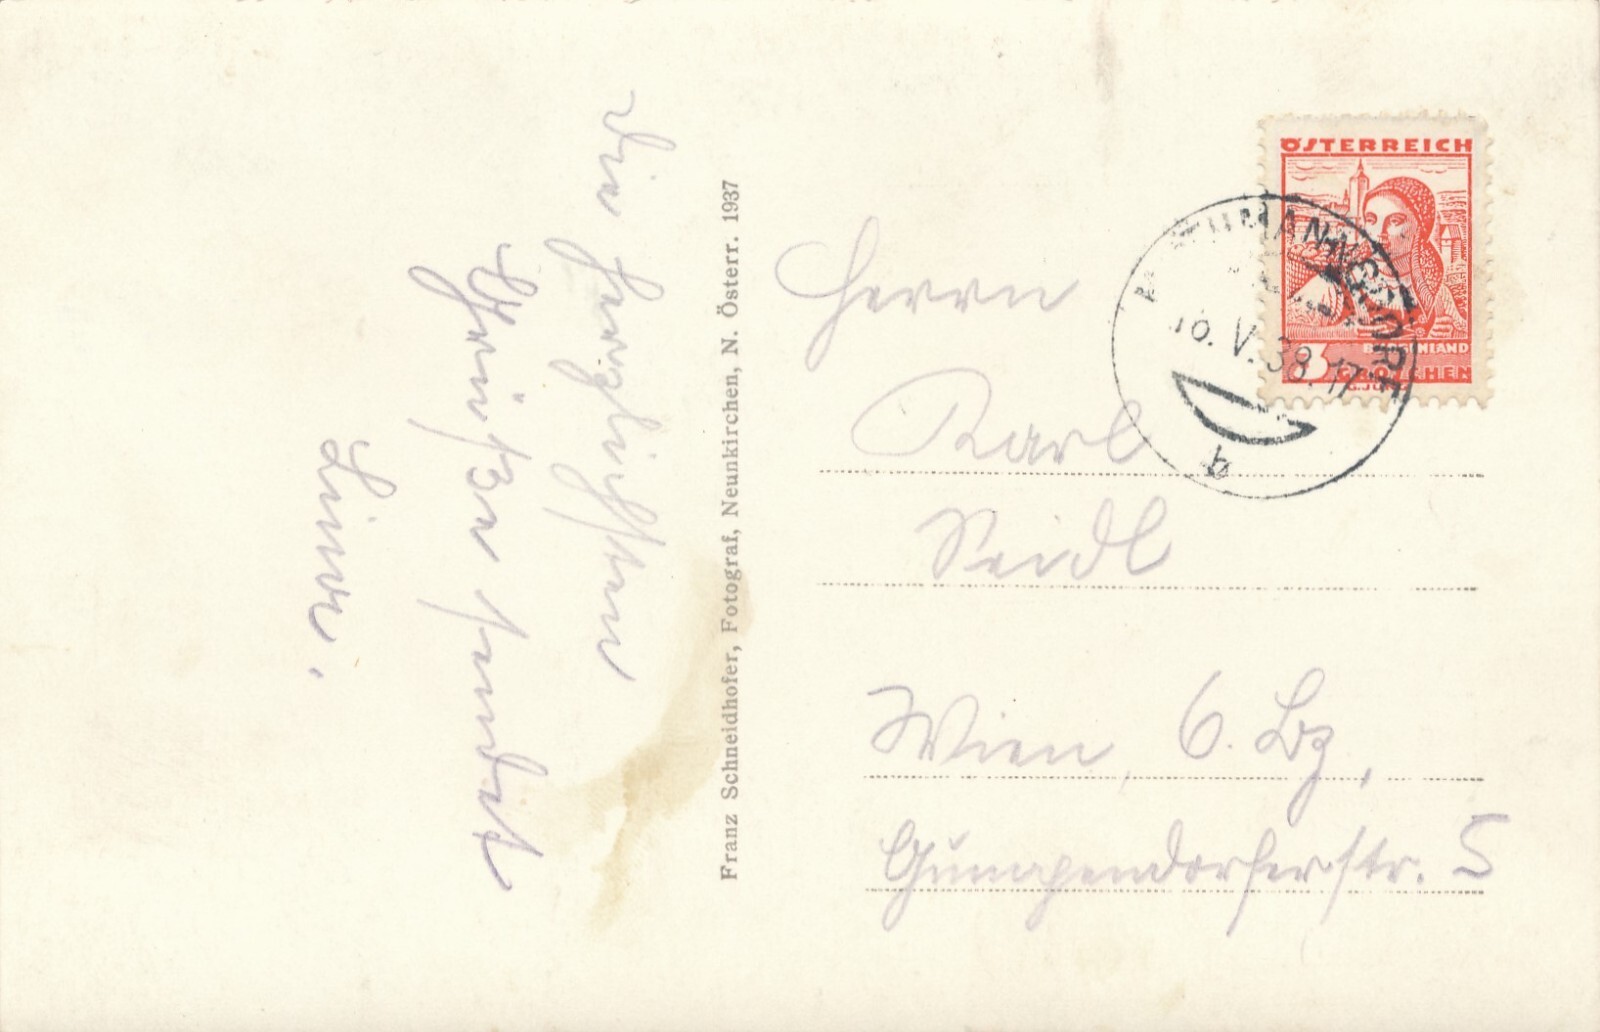 Die herzlichsten
Grüße sendet
Franz Schneidhofer, Fotograf, Neunkirchen, N. Österr. 1937
ÖSTERREICH
BURGENLAND
3 GROSCHEN
16. V. 38. 17
Herrn
Karl
Seidl
Wien, 6. Bz,
Gumpendorferstr. 5